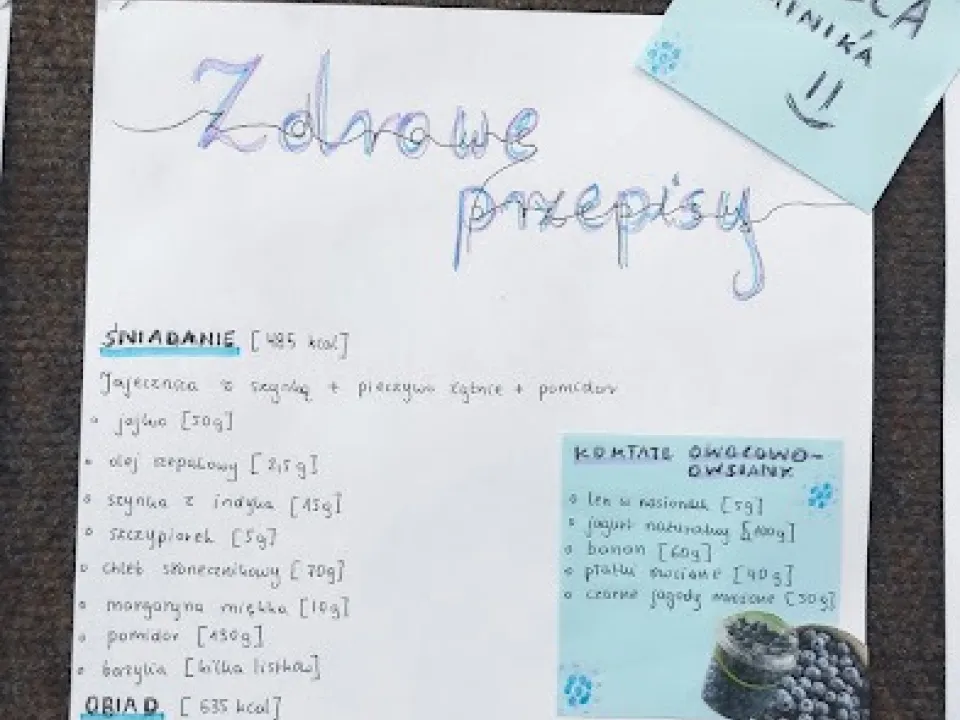 Zdrowe
przepisy
MINIKA
ŚNIADANIE [485 kcal]
Jajecznica z szynką + pieczywo żytnie + pomidor
• jajko [50g]
• olej rzepakowy [2,5g]
• szynka z indyka [15g]
• szczypiorek [5g]
• chleb słonecznikowy [70g]
• margaryna miękka [10g]
• pomidor [130g]
• bazylia [kilka listków]
OBIAD [635 kcal]
KOKTAJL OWOCOWO-
OWSIANY
• len w nasionach [5g]
• jogurt naturalny [100g]
• banan [60g]
• płatki owsiane [40g]
• czarne jagody mrożone [50g]